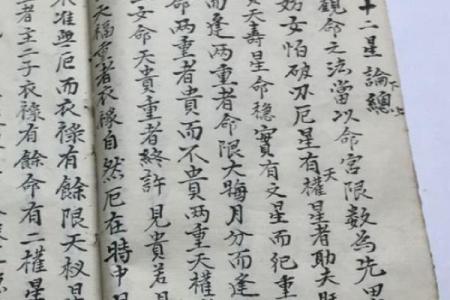 十二星論總下上
觀命之法當以命宮限數為先
女怕破刃厄星有權天星者助夫旺
天壽星命穩實有文星而紀重
而逢兩重者命限大晦月分而逢
命兩重者貴而不貴兩重天權
女命天貴重者終許見貴若月
天福者衣祿自然厄在時中
准無厄而衣祿有餘限天日
者主二子衣祿有餘命有二權星